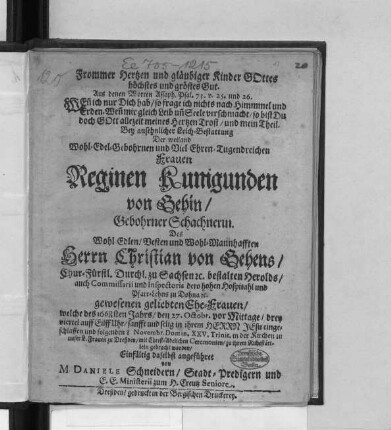 Ee 705-1215
20
Frommer Hertzen und gläubiger Kinder GOttes
höchstes und gröstes Gut.
Aus denen Worten Assaph. Psal. 73. v. 25. und 26.
WEñ ich nur Dich hab/ so frage ich nichts nach Himmmel und
Erden. Weñ mir gleich Leib uñ Seele verschmacht/ so bist Du
doch GOtt allezeit meines Hertzen Trost/ und mein Theil.
Bey ansehnlicher Leich-Bestattung
Der weiland
Wohl-Edel-Gebohrnen und Viel Ehren-Tugendreichen
Frauen
Reginen Kunigunden
von Gebin/
Gebohrner Schachnerin.
Des
Wohl Edlen/ Vesten und Wohl-Mannhafften
Herrn Christian von Gebens/
Chur-Fürstl. Durchl. zu Sachsen ꝛc. bestalten Herolds/
auch Commissarii und Inspectoris dero hohen Hospitahl und
zu Dohna ꝛc.
gewesenen geliebten Ehe-Frauen/
welche des Jahrs/ den 27. Octobr. vor Mittage/ drey
viertel auff Eilff Uhr/ sanfft und selig in ihrem HERRN JESu einge-
schlaffen und folgenden 1 Novembr. Domin. XXV. Trinit. in der Kirchen zu
zu Dreßden/ mit Christ-üblichen Ceremonien/ zu ihrem
gebracht worden/
Einfältig daselbst angeführet
von
M. DANIELE Schneidern/ Stadt-Predigern und
E. E. Ministerii zum H. Creutz Seniore.
Dreßden/ gedruckt in der Bergischen Druckerey.